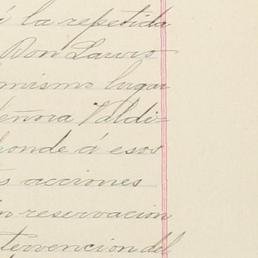 á la repetida
Don Lauro
mismo lugar
Señora Valdi-
ponde á esos
s acciones
in reservacion
tervencion del